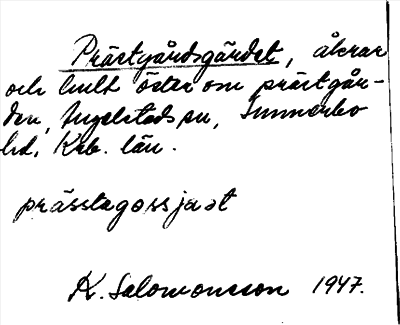 Prästgårdsgärdet, åkrar
och hult öster om prästgår-
den, Ungelstads sn, Sunnerbo
hd, Krb. län.
prässtagossjaot
K. Salomonsson 1947.